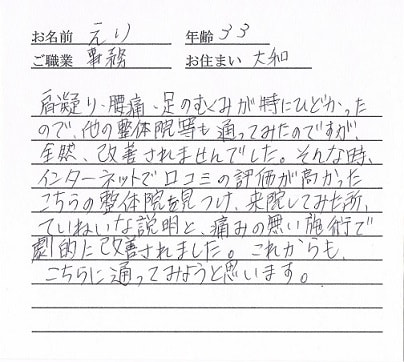 お名前 えり 年齢 33
ご職業 事務 お住まい 大和
肩凝り、腰痛、足のむくみが特にひどかった
ので、他の整体院等も通ってみたのですが、
全然、改善されませんでした。そんな時、
インターネットで口コミの評価が高かった
こちらの整体院を見つけ、来院してみた所、
ていねいな説明と、痛みの無い施術で
劇的に改善されました。これからも、
こちらに通ってみようと思います。